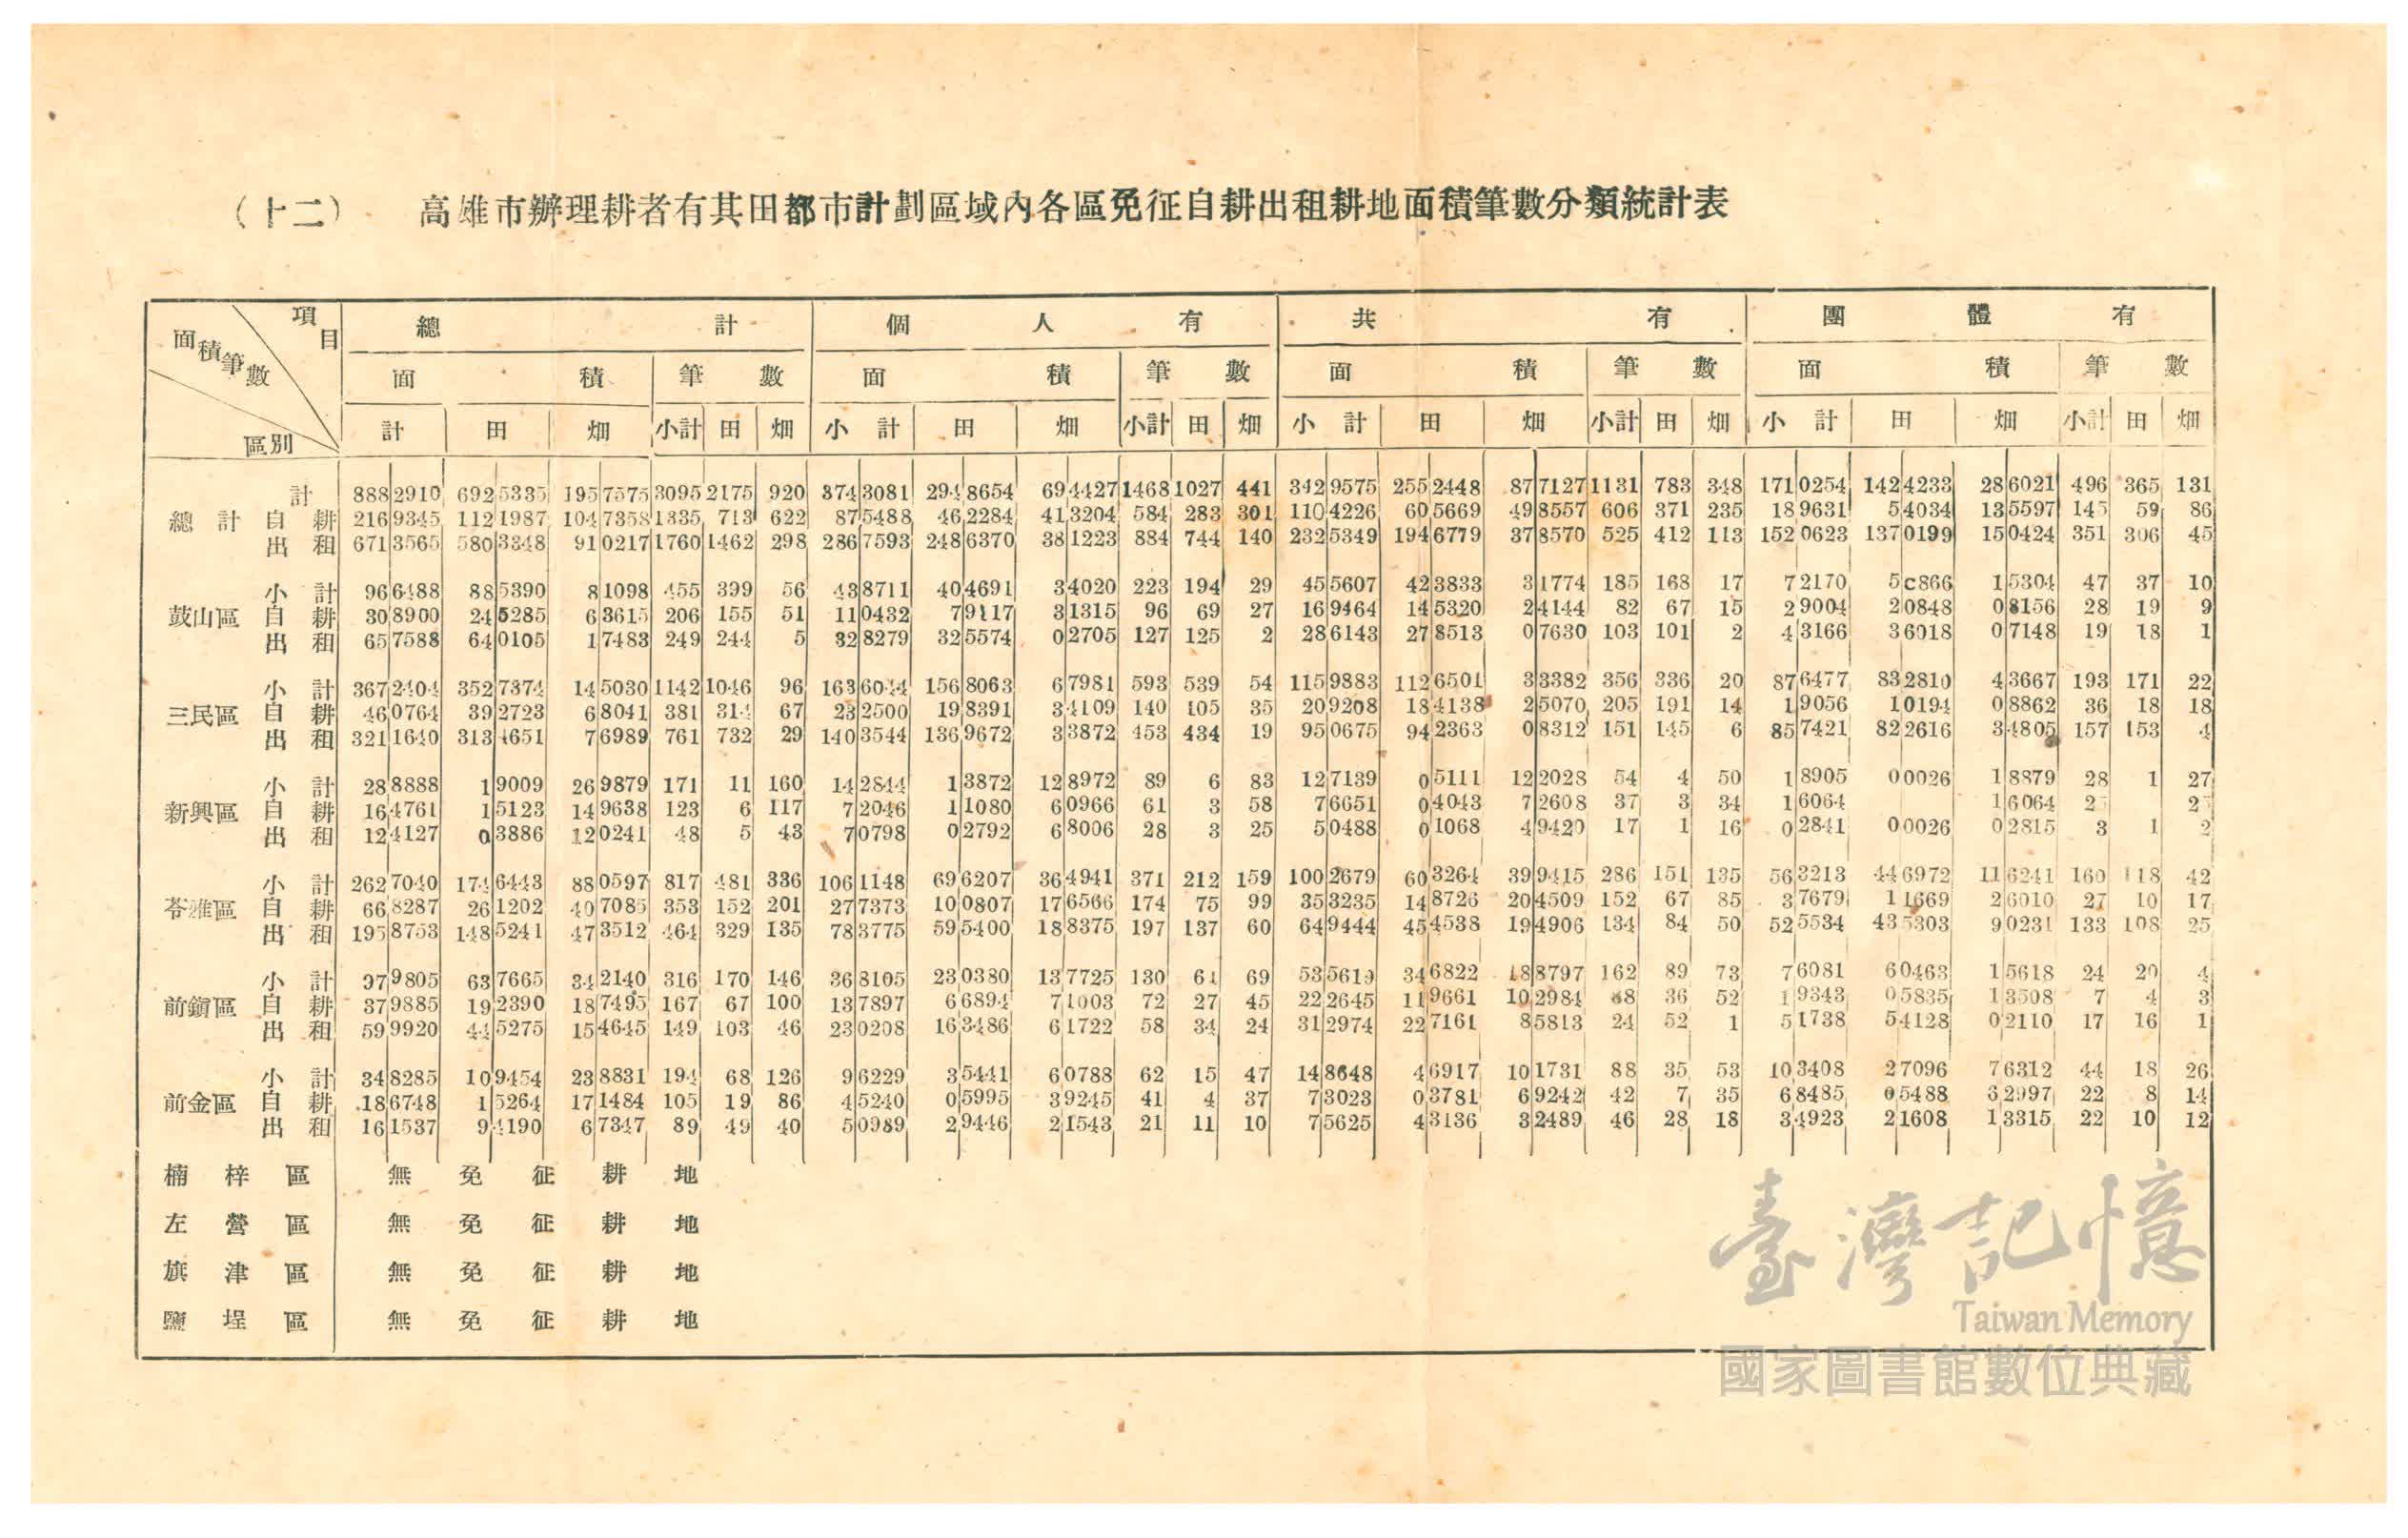 (十二) 高雄市辦理耕者有其田都市計劃區域內各區免征自耕出租耕地面積筆數分類統計表
項目 面積筆數 區別
總計 個人有 共有 團體有
面積 筆數 面積 筆數 面積 筆數 面積 筆數
計 田 畑 小計 田 畑 小計 田 畑 小計 田 畑 小計 田 畑 小計 田 畑 小計 田 畑 小計 田 畑
計 888 2910 692 5335 195 7575 3095 2175 920 374 3081 294 8654 69 4427 1468 1027 441 342 9575 255 2448 87 7127 1131 783 348 171 0254 142 4233 28 6021 496 365 131
總計 自耕 216 9345 112 1987 104 7358 1335 713 622 87 5488 46 2284 41 3204 584 283 301 110 4226 60 5669 49 8557 606 371 235 18 9631 5 4034 13 5597 145 59 86
出租 671 3565 580 3348 91 0217 1760 1462 298 286 7593 248 6370 38 1223 884 744 140 232 5349 194 6779 37 8570 525 412 113 152 0623 137 0199 15 0424 351 306 45
小計 96 6488 88 5390 8 1098 455 399 56 43 8711 40 4691 3 4020 223 194 29 45 5607 42 3833 3 1774 185 168 17 7 2170 5 c866 1 5304 47 37 10
鼓山區 自耕 30 8900 24 5285 6 3615 206 155 51 11 0432 7 9117 3 1315 96 69 27 16 9464 14 5320 2 4144 82 67 15 2 9004 2 0848 0 8156 28 19 9
出租 65 7588 64 0105 1 7483 249 244 5 32 8279 32 5574 0 2705 127 125 2 28 6143 27 8513 0 7630 103 101 2 4 3166 3 6018 0 7148 19 18 1
小計 367 2404 352 7374 14 5030 1142 1046 96 163 6044 156 8063 6 7981 593 539 54 115 9883 112 6501 3 3382 356 336 20 87 6477 83 2810 4 3667 193 171 22
三民區 自耕 46 0764 39 2723 6 8041 381 314 67 23 2500 19 8391 3 4109 140 105 35 20 9208 18 4138 2 5070 205 191 14 1 9056 1 0194 0 8862 36 18 18
出租 321 1640 313 4651 7 6989 761 732 29 140 3544 136 9672 3 3872 453 434 19 95 0675 94 2363 0 8312 151 145 6 85 7421 82 2616 3 4805 157 153 4
小計 28 8888 1 9009 26 9879 171 11 160 14 2844 1 3872 12 8972 89 6 83 12 7139 0 5111 12 2028 54 4 50 1 8905 0 0026 1 8879 28 1 27
新興區 自耕 16 4761 1 5123 14 9638 123 6 117 7 2046 1 1080 6 0966 61 3 58 7 6651 0 4043 7 2608 37 3 34 1 6064 1 6064
出租 12 4127 0 3886 12 0241 48 5 43 7 0798 0 2792 6 8006 28 3 25 5 0488 0 1068 4 9420 17 1 16 0 2841 0 0026 0 2815 3 1 2
小計 262 7040 174 6443 88 0597 817 481 336 106 1148 69 6207 36 4941 371 212 159 100 2679 60 3264 39 9415 286 151 135 56 3213 44 6972 11 6241 160 118 42
苓雅區 自耕 66 8287 26 1202 40 7085 353 152 201 27 7373 10 0807 17 6566 174 75 99 35 3235 14 8726 20 4509 152 67 85 3 7679 1 1669 2 6010 27 10 17
出租 195 8753 148 5241 47 3512 464 329 135 78 3775 59 5400 18 8375 197 137 60 64 9444 45 4538 19 4906 134 84 50 52 5534 43 5303 9 0231 133 108 25
小計 97 9805 63 7665 34 2140 316 170 146 36 8105 23 0380 13 7725 130 61 69 53 5619 34 6822 18 8797 162 89 73 7 6081 6 0463 1 5618 24 20 4
前鎭區 自耕 37 9885 19 2390 18 7495 167 67 100 13 7897 6 6894 7 1003 72 27 45 22 2645 11 9661 10 2984 88 36 52 1 9343 0 5835 1 3508 7 4 3
出租 59 9920 44 5275 15 4645 149 103 46 23 0208 16 3486 6 1722 58 34 24 31 2974 22 7161 8 5813 24 52 1 5 1738 5 4128 0 2110 17 16 1
小計 34 8285 10 9454 23 8831 194 68 126 9 6229 3 5441 6 0788 62 15 47 14 8648 4 6917 10 1731 88 35 53 10 3408 2 7096 7 6312 44 18 26
前金區 自耕 18 6748 1 5264 17 1484 105 19 86 4 5240 0 5995 3 9245 41 4 37 7 3023 0 3781 6 9242 42 7 35 6 8485 0 5488 6 2997 22 8 14
出租 16 1537 9 4190 6 7347 89 49 40 5 0989 2 9446 2 1543 21 11 10 7 5625 4 3136 3 2489 46 28 18 3 4923 2 1608 1 3315 22 10 12
楠梓區 無免征耕地
左營區 無免征耕地
旗津區 無免征耕地
鹽埕區 無免征耕地
臺灣記憶
Taiwan Memory
國家圖書館數位典藏